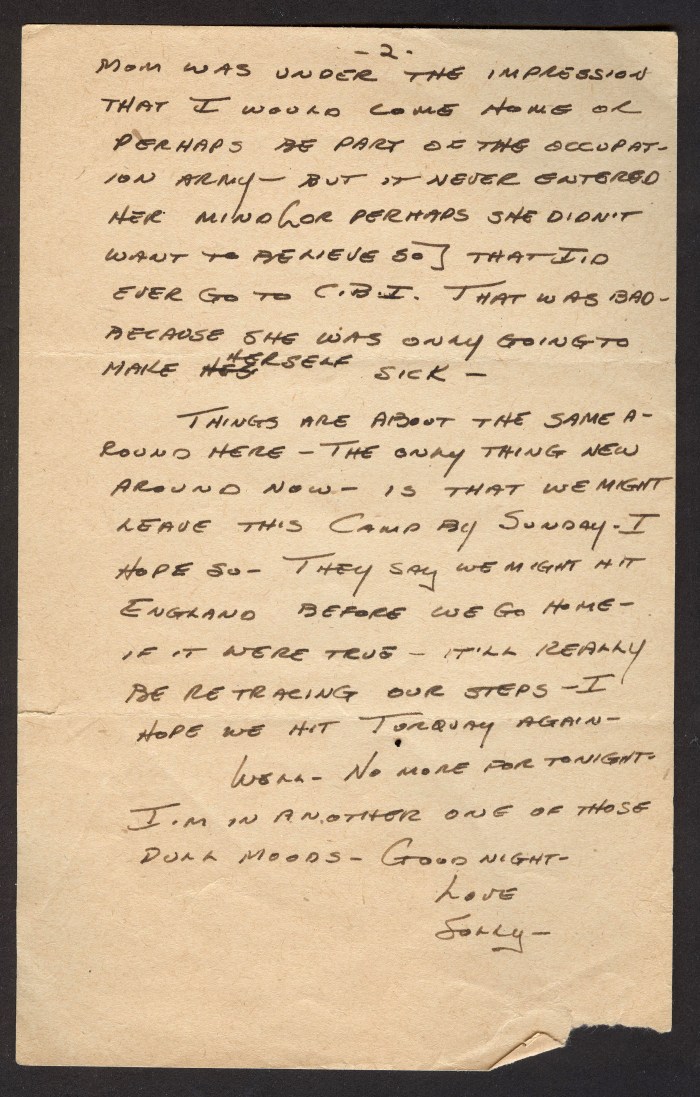 - 2 -
MOM WAS UNDER THE IMPRESSION
THAT I WOULD COME HOME OR
PERHAPS BE PART OF THE OCCUPAT-
ION ARMY - BUT IT NEVER ENTERED
HER MIND [OR PERHAPS SHE DIDN'T
WANT TO BELIEVE SO] THAT I'D
EVER GO TO C.B.I. THAT WAS BAD -
BECAUSE SHE WAS ONLY GOING TO
MAKE HERSELF SICK -
THINGS ARE ABOUT THE SAME A-
ROUND HERE - THE ONLY THING NEW
AROUND NOW - IS THAT WE MIGHT
LEAVE THIS CAMP BY SUNDAY - I
HOPE SO - THEY SAY WE MIGHT HIT
ENGLAND BEFORE WE GO HOME -
IF IT WERE TRUE - IT'LL REALLY
BE RETRACING OUR STEPS - I
HOPE WE HIT TORQUAY AGAIN -
WELL - NO MORE FOR TONIGHT -
I'M IN ANOTHER ONE OF THOSE
DULL MOODS - GOOD NIGHT -
LOVE
SOLLY -